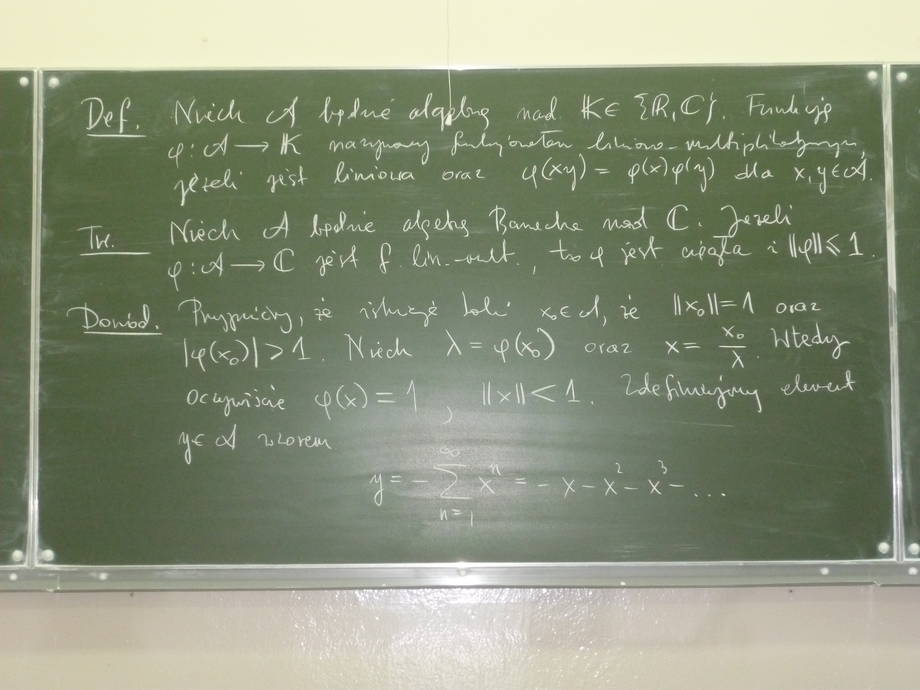 Def. Niech A będzie algebrą nad K ∈ {R, C}. Funkcję
φ: A → K nazywamy funkcjonałem liniowo-multiplikatywnym,
jeżeli jest liniowa oraz φ(xy) = φ(x)φ(y) dla x, y ∈ A.
Tw. Niech A będzie algebrą Banacha nad C. Jeżeli
φ: A → C jest f. lin-mult., to φ jest ciągła i ||φ|| ⩽ 1.
Dowód. Przypuśćmy, że istnieje taki x₀ ∈ A, że ||x₀|| = 1 oraz
|φ(x₀)| > 1. Niech λ = φ(x₀) oraz x = x₀/λ. Wtedy
oczywiście φ(x) = 1, ||x|| < 1. Zdefiniujmy element
y ∈ A wzorem
y = - ∑_{n=1}^{∞} xⁿ = - x - x² - x³ - ...